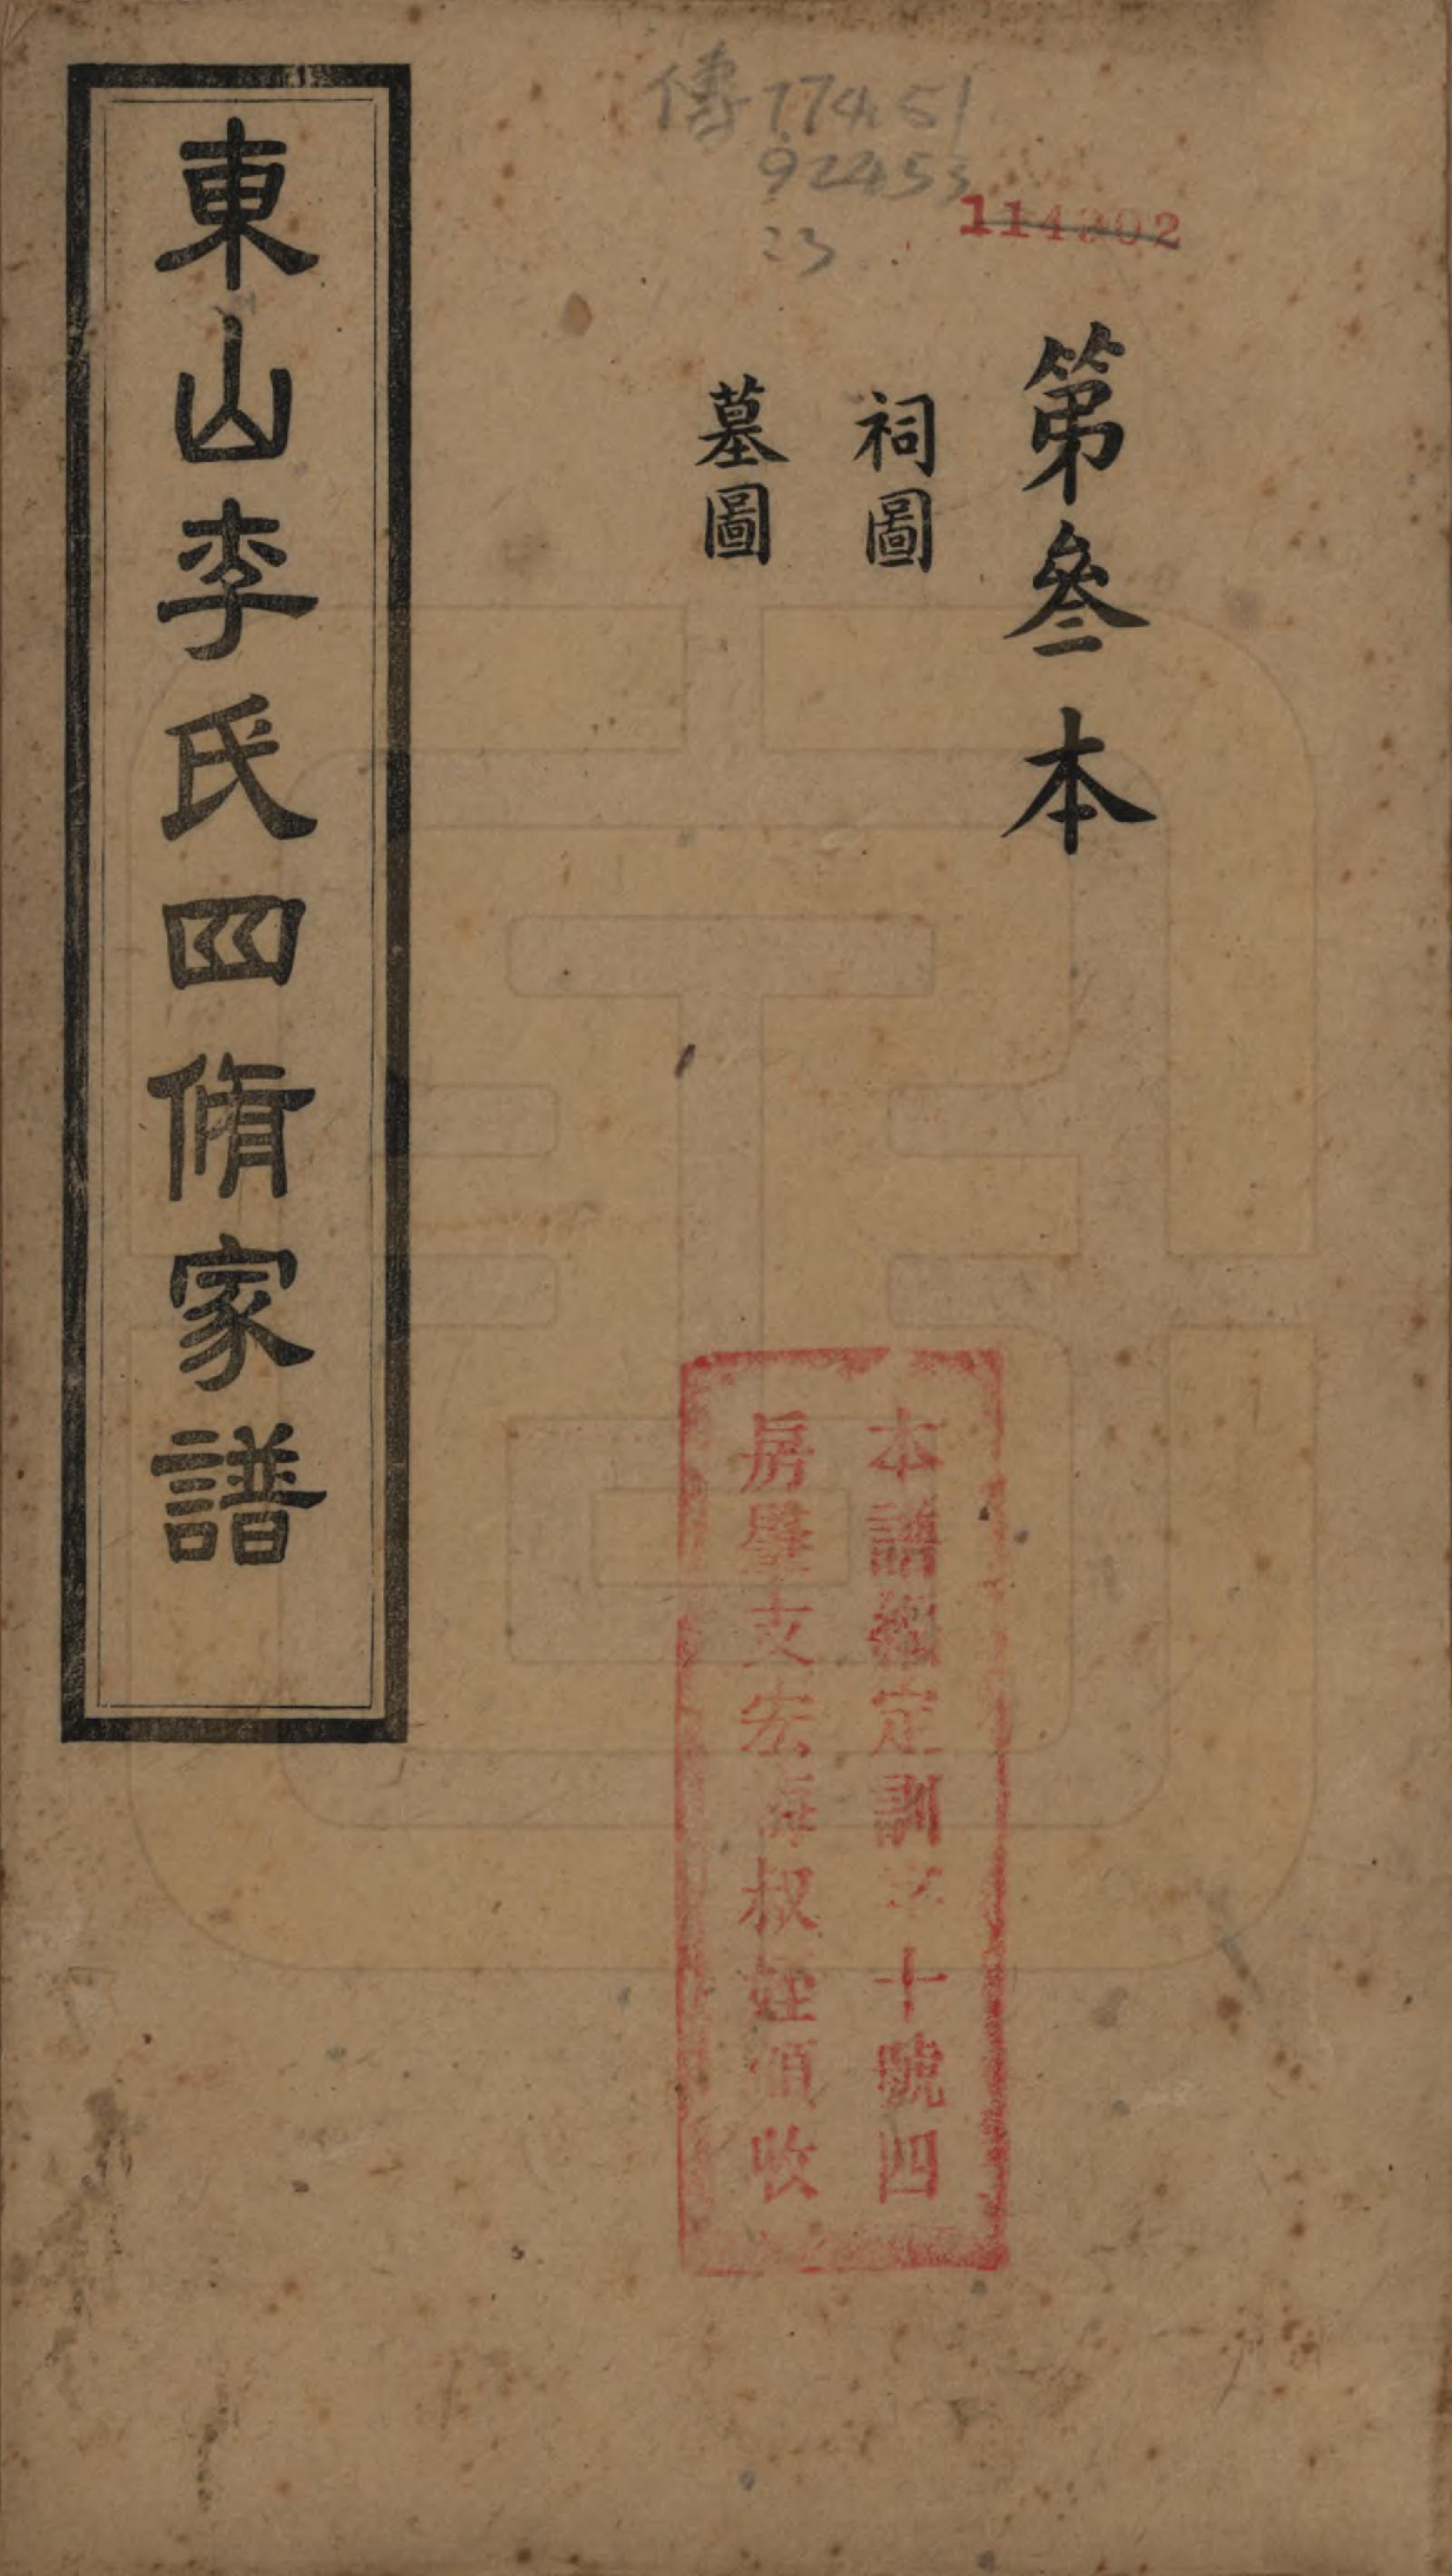 傳774.51
92453
23
114302
第叁本
祠圖
墓圖
東山李氏四脩家譜
本譜編定訓字十號四
房璧支宏海叔姪領收